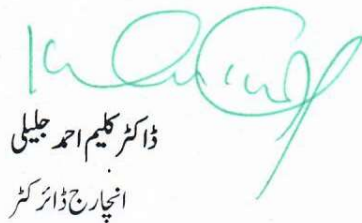 ڈاکٹر کلیم احمد جلیلی
انچارج ڈائرکٹر